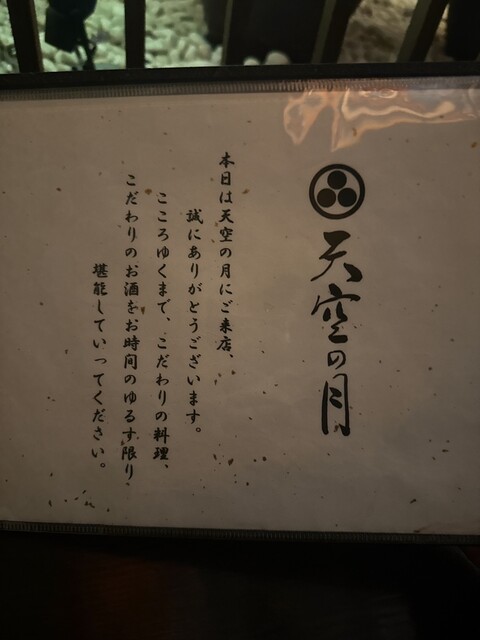 天空の月
本日は天空の月にご来店、
誠にありがとうございます。
こころゆくまで、こだわりの料理、
こだわりのお酒をお時間のゆるす限り
堪能していってください。